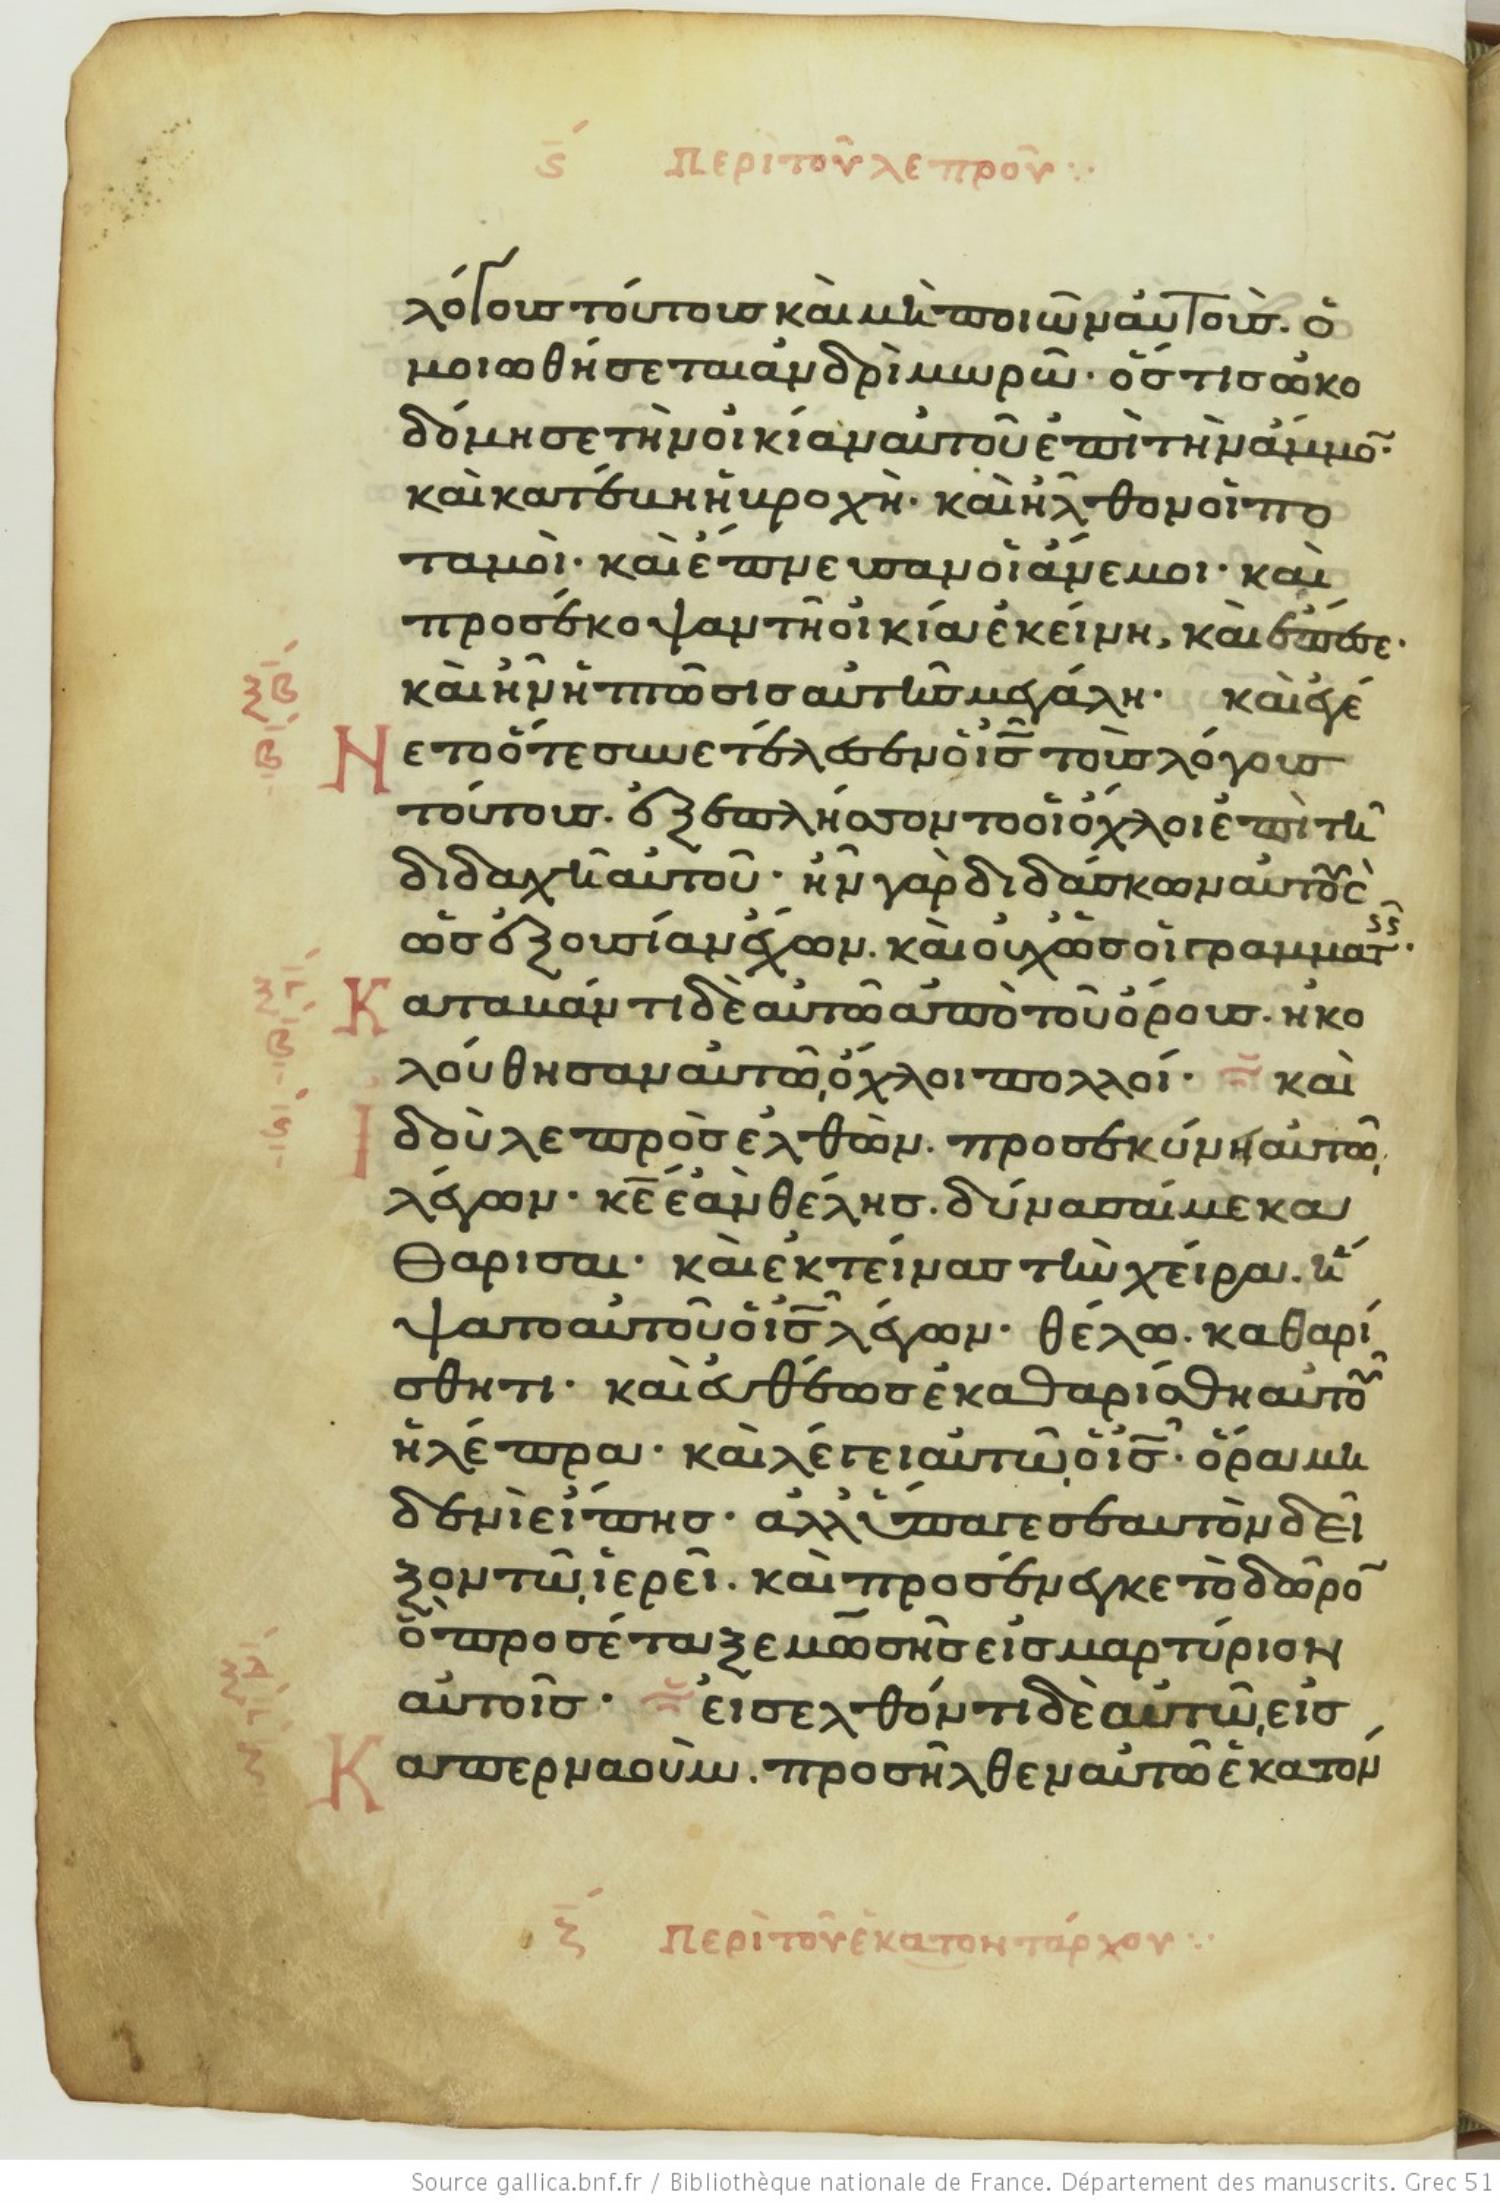 ϛ́ Περὶ τοῦ λεπροῦ
λόγους τούτους καὶ μὴ ποιῶν αὐτοὺς. ὁ
μοιωθήσεται ἀνδρὶ μωρῶ· ὅστις ὠκο
δόμησε τὴν οἰκίαν αὐτοῦ ἐπὶ τὴν ἄμμο̃·
καὶ κατέβη ἡ βροχὴ· καὶ ἦλθον οἱ πο
ταμοὶ· καὶ ἔπνευσαν οἱ ἄνεμοι· καὶ
προσέκοψαν τῆ οἰκία ἐκείνη, καὶ ἔπεσε·
καὶ ἦν ἡ πτῶσις αὐτῆς μεγάλη· καὶ ἐγέ
ξβ
β
Νετο ὅτε συνετέλεσεν ὁ ις̅ τοὺς λόγους
τούτους. ἐξεπλήσσοντο οἱ ὄχλοι ἐπὶ τῆ
διδαχῆ αὐτοῦ· ἦν γὰρ διδάσκων αὐτοὺς
ὡς ἐξουσίαν ἔχων. καὶ οὐχ ὡς οἱ γραμματ·
ξγ
β
Καταβάντι δὲ αὐτῶ ἀπὸ τοῦ ὄρους. ἠκο
λούθησαν αὐτῶ, ὄχλοι πολλοί· καὶ
ϛ
Ιδοὺ λεπρὸς ἐλθὼν. προσεκύνει αὐτῶ,
λέγων· κε̅ ἐὰν θέλης. δύνασαί με κα
θαρισαι· καὶ ἐκτείνας τὴν χεῖρα. ἥ
ψατο αὐτοῦ ὁ ις̅ λέγων· θέλω. καθαρί
σθητι· καὶ εὐθέως ἐκαθαρίσθη αὐτοῦ
ἡ λέπρα· καὶ λέγει αὐτῶ, ὁ ις̅· ὅρα μη
δενὶ εἴπης· ἀλλ' ὕπαγε σεαυτὸν δεῖ
ξον τῶ, ἱερεῖ. καὶ προσένεγκε τὸ δῶρο̃
ὃ προσέταξε μωσῆς εἰς μαρτύριον
αὐτοῖς· εἰσελθόντι δὲ αὐτῶ, εἰς
ξδ
γ
ζ
Καπερναοὺμ. προσῆλθεν αὐτῶ ἑκατόν
ζ́ Περὶ τοῦ ἑκατοντάρχου
Source gallica.bnf.fr / Bibliothèque nationale de France. Département des manuscrits. Grec 51